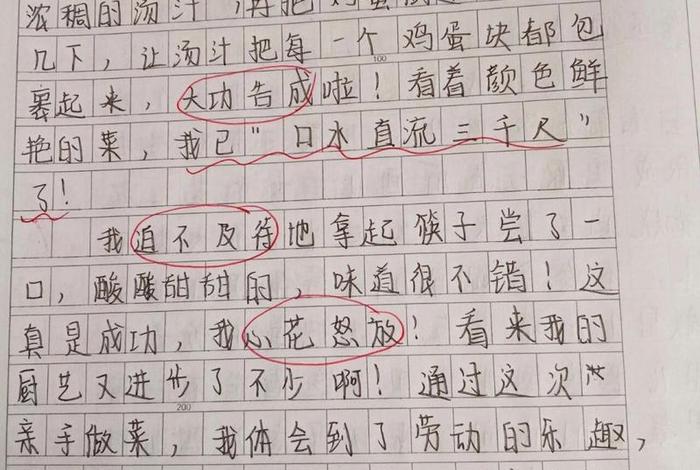 浓稠的汤汁,再把鸡蛋
几下,让汤汁把每一个鸡蛋块都包
100
裹起来,大功告成啦!看着颜色鲜
艳的菜,我已"口水直流三千尺"
了!
我迫不及待地拿起筷子尝了一
口,酸酸甜甜的,味道很不错!这
真是成功,我心花怒放!看来我的
厨艺又进步了不少啊!通过这次
200
亲手做菜,我体会到了劳动的乐趣,